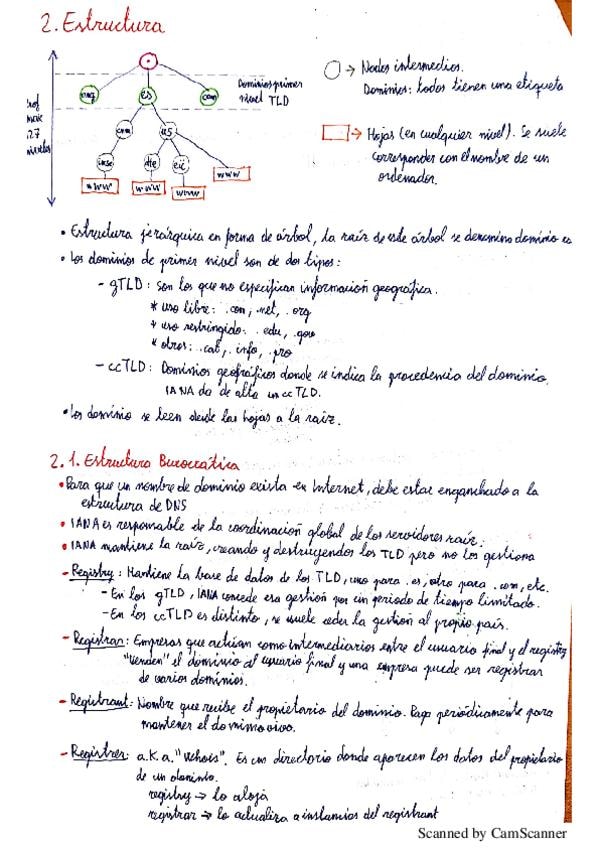 2. Estructura
Dominios primer
nivel TLD
org
es
com
prof
max
27
niveles
us
dte
eii
www
www
www
www
→ Nodos intermedios.
Dominios: todos tienen una etiqueta
→ Hojas (en cualquier nivel). Se suele
corresponder con el nombre de un
ordenador.
• Estructura jerárquica en forma de árbol, la raíz de este árbol se denomina dominio
• Los dominios de primer nivel son de dos tipos:
- gTLD: Son los que no especifican información geográfica.
* uso libre: .com, .net, .org
* uso restringido: .edu, .gov
* otros: .cat, .info, .pro
- ccTLD: Dominios geográficos donde se indica la procedencia del dominio.
IANA da de alta un ccTLD.
• Los dominio se leen desde las hojas a la raíz.
2.1. Estructura Burocrática
• Para que un nombre de dominio exista en Internet, debe estar enganchado a la
estructura de DNS
• IANA es responsable de la coordinación global de los servidores raíz.
• IANA mantiene la raíz, creando y destruyendos los TLD pero no los gestiona
- Registry: Mantiene la base de datos de los TLD, uno para .es, otro para .com, etc.
- En los gTLD, IANA concede esa gestión por un periodo de tiempo limitado.
- En los ccTLD es distinto, se suele ceder la gestión al propio país.
- Registrar: Empresas que actúan como intermediarios entre el usuario final y el registry
"venden" el dominio al usuario final y una empresa puede ser registrar
de varios dominios.
- Registrant: Nombre que recibe el propietario del dominio. Paga periódicamente para
mantener el dominio vivo.
- Registrer: a.k.a. "whois". Es un directorio donde aparecen los datos del propietario
de un dominio.
registry → lo aloja
registrar → lo actualiza a instancias del registrant
Scanned by CamScanner